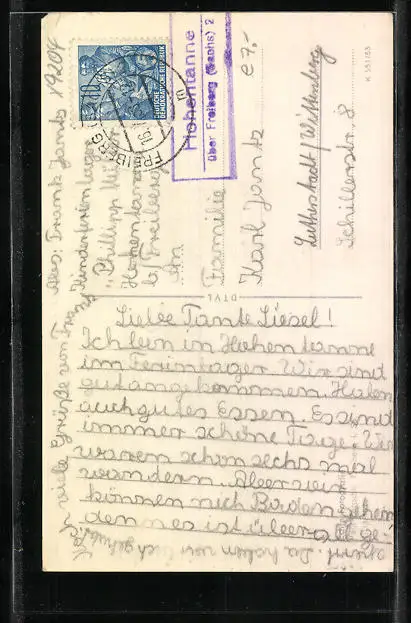 Liebe Tante Liesel!
Ich bin im Hohentanne
im Ferienlager. Wir sind
gut angekommen. Haben
auch gutes Essen. Es sind
immer schöne Tage. Wir
waren schon sechs mal
wandern. Aber wir
können nich Baden gehen
denn es ist überall ge-
viele Grüße von Frank
Abs: Frank Jantz
Kinderferienlager
"Philipp Müller"
Hohentanne
b/ Freiberg
An
Familie
Karl Jantz
Lutherstadt/Wittenberg
Schillerstr. 8
Hohentanne
über Freiberg (Sachs) 2
FREIBERG
10
DEUTSCHE
DEMOKRATISCHE REPUBLIK
€ 7,-
DTVL